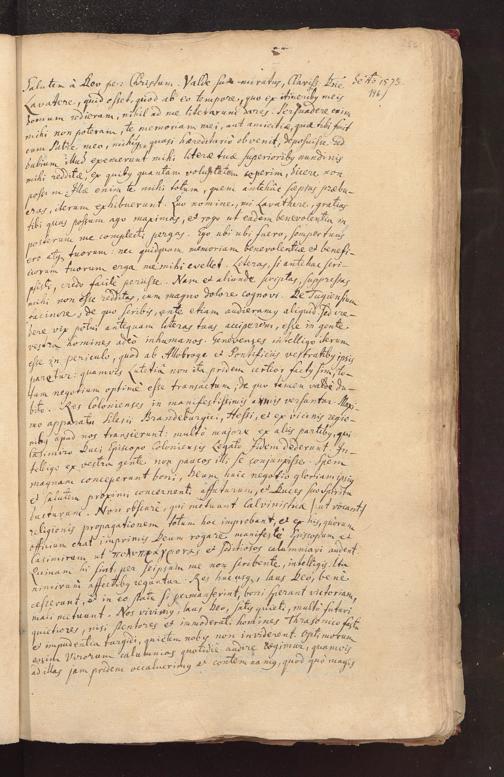 Salutem à Deo per Christum. Valde sum miratus, Clariss. Dne
Lavatere, quid esset, quod ab eo tempore, quo ex itineribus meis
domum redieram, nihil ad me literarum dares. Persuadere enim
mihi non poteram, te memoriam mei, aut amicitiae, quae tibi fuit
cum Patre meo, mihique quasi haereditario obvenit, deposuisse. Sed
dubium illud exemerunt mihi literae tuae superioribus nundinis
mihi redditae, ex quibus quantam voluptatem ceperim, dicere non
possum. Illae enim te mihi totum, quem antehac saepius praebu-
eras, iterum exhibuerunt. Quo nomine, mi Lavathere, gratias
tibi quas possum ago maximas, et rogo ut eadem benevolentia in
posterum me complecti pergas. Ego ubi ubi fuero, semper tuus
ero atque tuorum: nec quidquam memoriam benevolentiae et benefi-
ciorum tuorum erga me mihi evellet. Literas, si antehac scri-
psisti, credo facilè perijsse. Nam et aliunde scriptas, suppressas
mihi non esse redditas, cum magno dolore cognovi. De Tugiensium
facinore, de quo scribis, ante etiam audieramus aliquid, sed cre-
dere vix potui antequam literas tuas acciperem, esse in gente
vestra homines adeò inhumanos. Genevenses intelligo iterum
esse in periculo, quod ab Allobroge et Pontificijs vestratibus ipsis
paretur: quamvis Lutetia non ita pridem certior factus sim, to-
tum negotium optimè esse transactum, de quo tamen valdè du-
bito. Res Colonienses in manifestissimis armis versantur. Maxi-
mo apparatu Silesii Brandeburgici, Hessi, et ex vicinis regio-
nibus apud nos transierunt: multò majore ex alijs partibus, qui
Casimiro Duci, Episcopo Coloniensis Legato fidem dederunt. In-
telligo ex vestra gente non paucos illi se conjunxisse. Spem
magnam conceperant boni, Deum huic negotio gloriam ipsius
et salutem proximi concernenti affuturum, et Duces
ducturum. Non obscurè, qui metuunt Calvinismi (ut vocant)
religionis propagationem totum hoc improbant, et ex his, quorum
officium erat imprimis Deum rogare manifestè Episcopum et
Casimirum ut πολυπράγμονας et seditiosos calumniari audent.
Quinam hi sint, per seipsum me non scribente, intelligis. Ita
nimirum affectibus reguntur. Res hucusque, laus Deo, bene
cesserunt, et in eo statu si permanserint, boni sperant victoriam,
mali metuunt. Nos vivimus, laus Deo, satis quietè, multò futuri
quietiores, nisi Stentores et immoderati homines Thrasonico fastu
et impudentia turgidi, quietem nobis non inviderent. Optimorum
enim Virorum calumnias quotidie audire cogimur, quamvis
ad illas jam pridem occaluerimus et contemnamus, quod quò magis